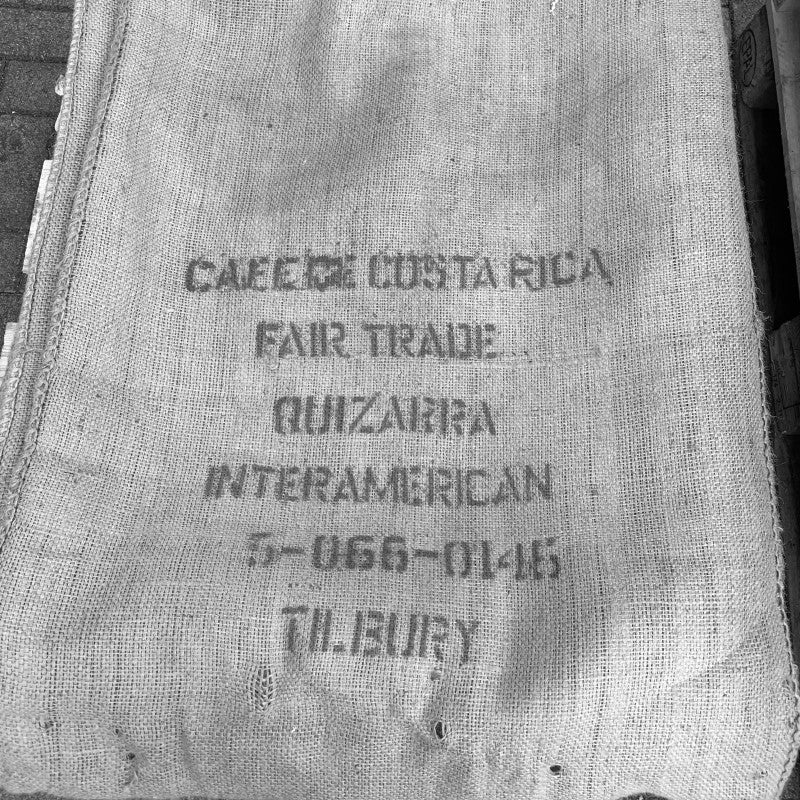 CAFE DE COSTA RICA
FAIR TRADE
QUIZARRA
INTERAMERICAN
5-066-0146
TILBURY